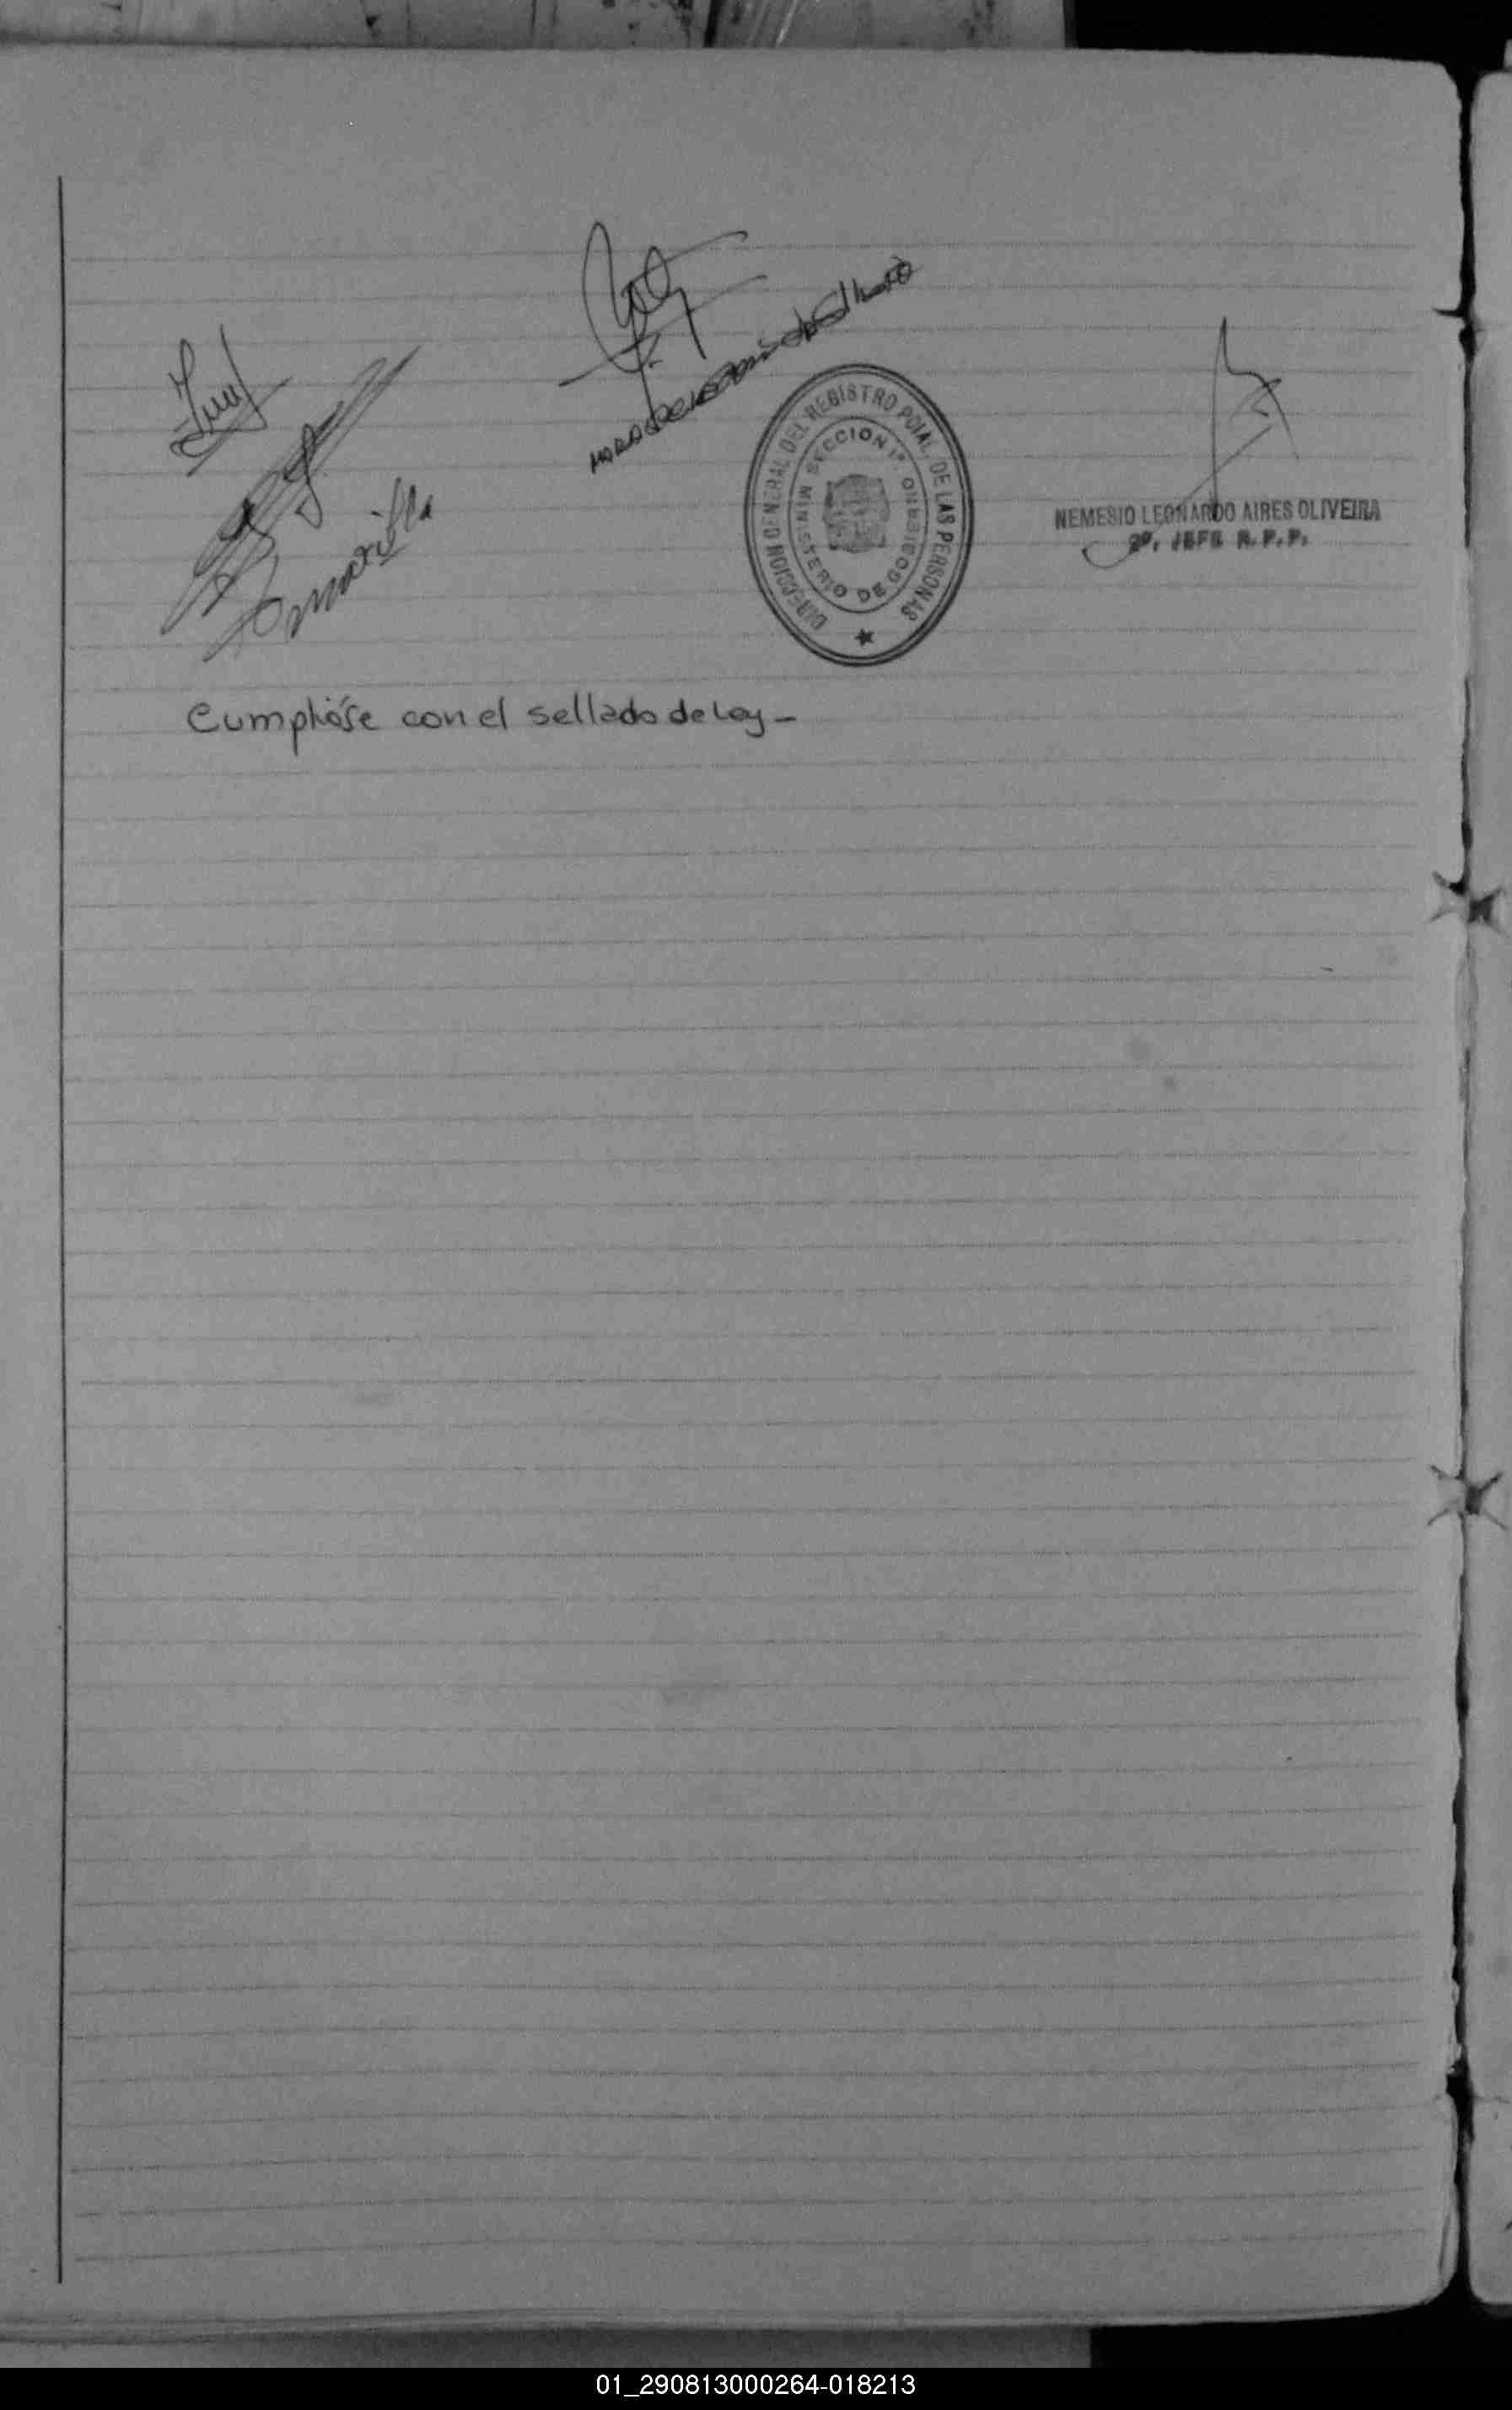 DIRECCION GENERAL DEL REGISTRO PCIAL. DE LAS PERSONAS
SECCION 1ª
MINISTERIO DE GOBIERNO
NEMESIO LEONARDO AIRES OLIVEIRA
2º. JEFE R. P. P.
Cumplióse con el sellado de Ley -
01_290813000264-018213